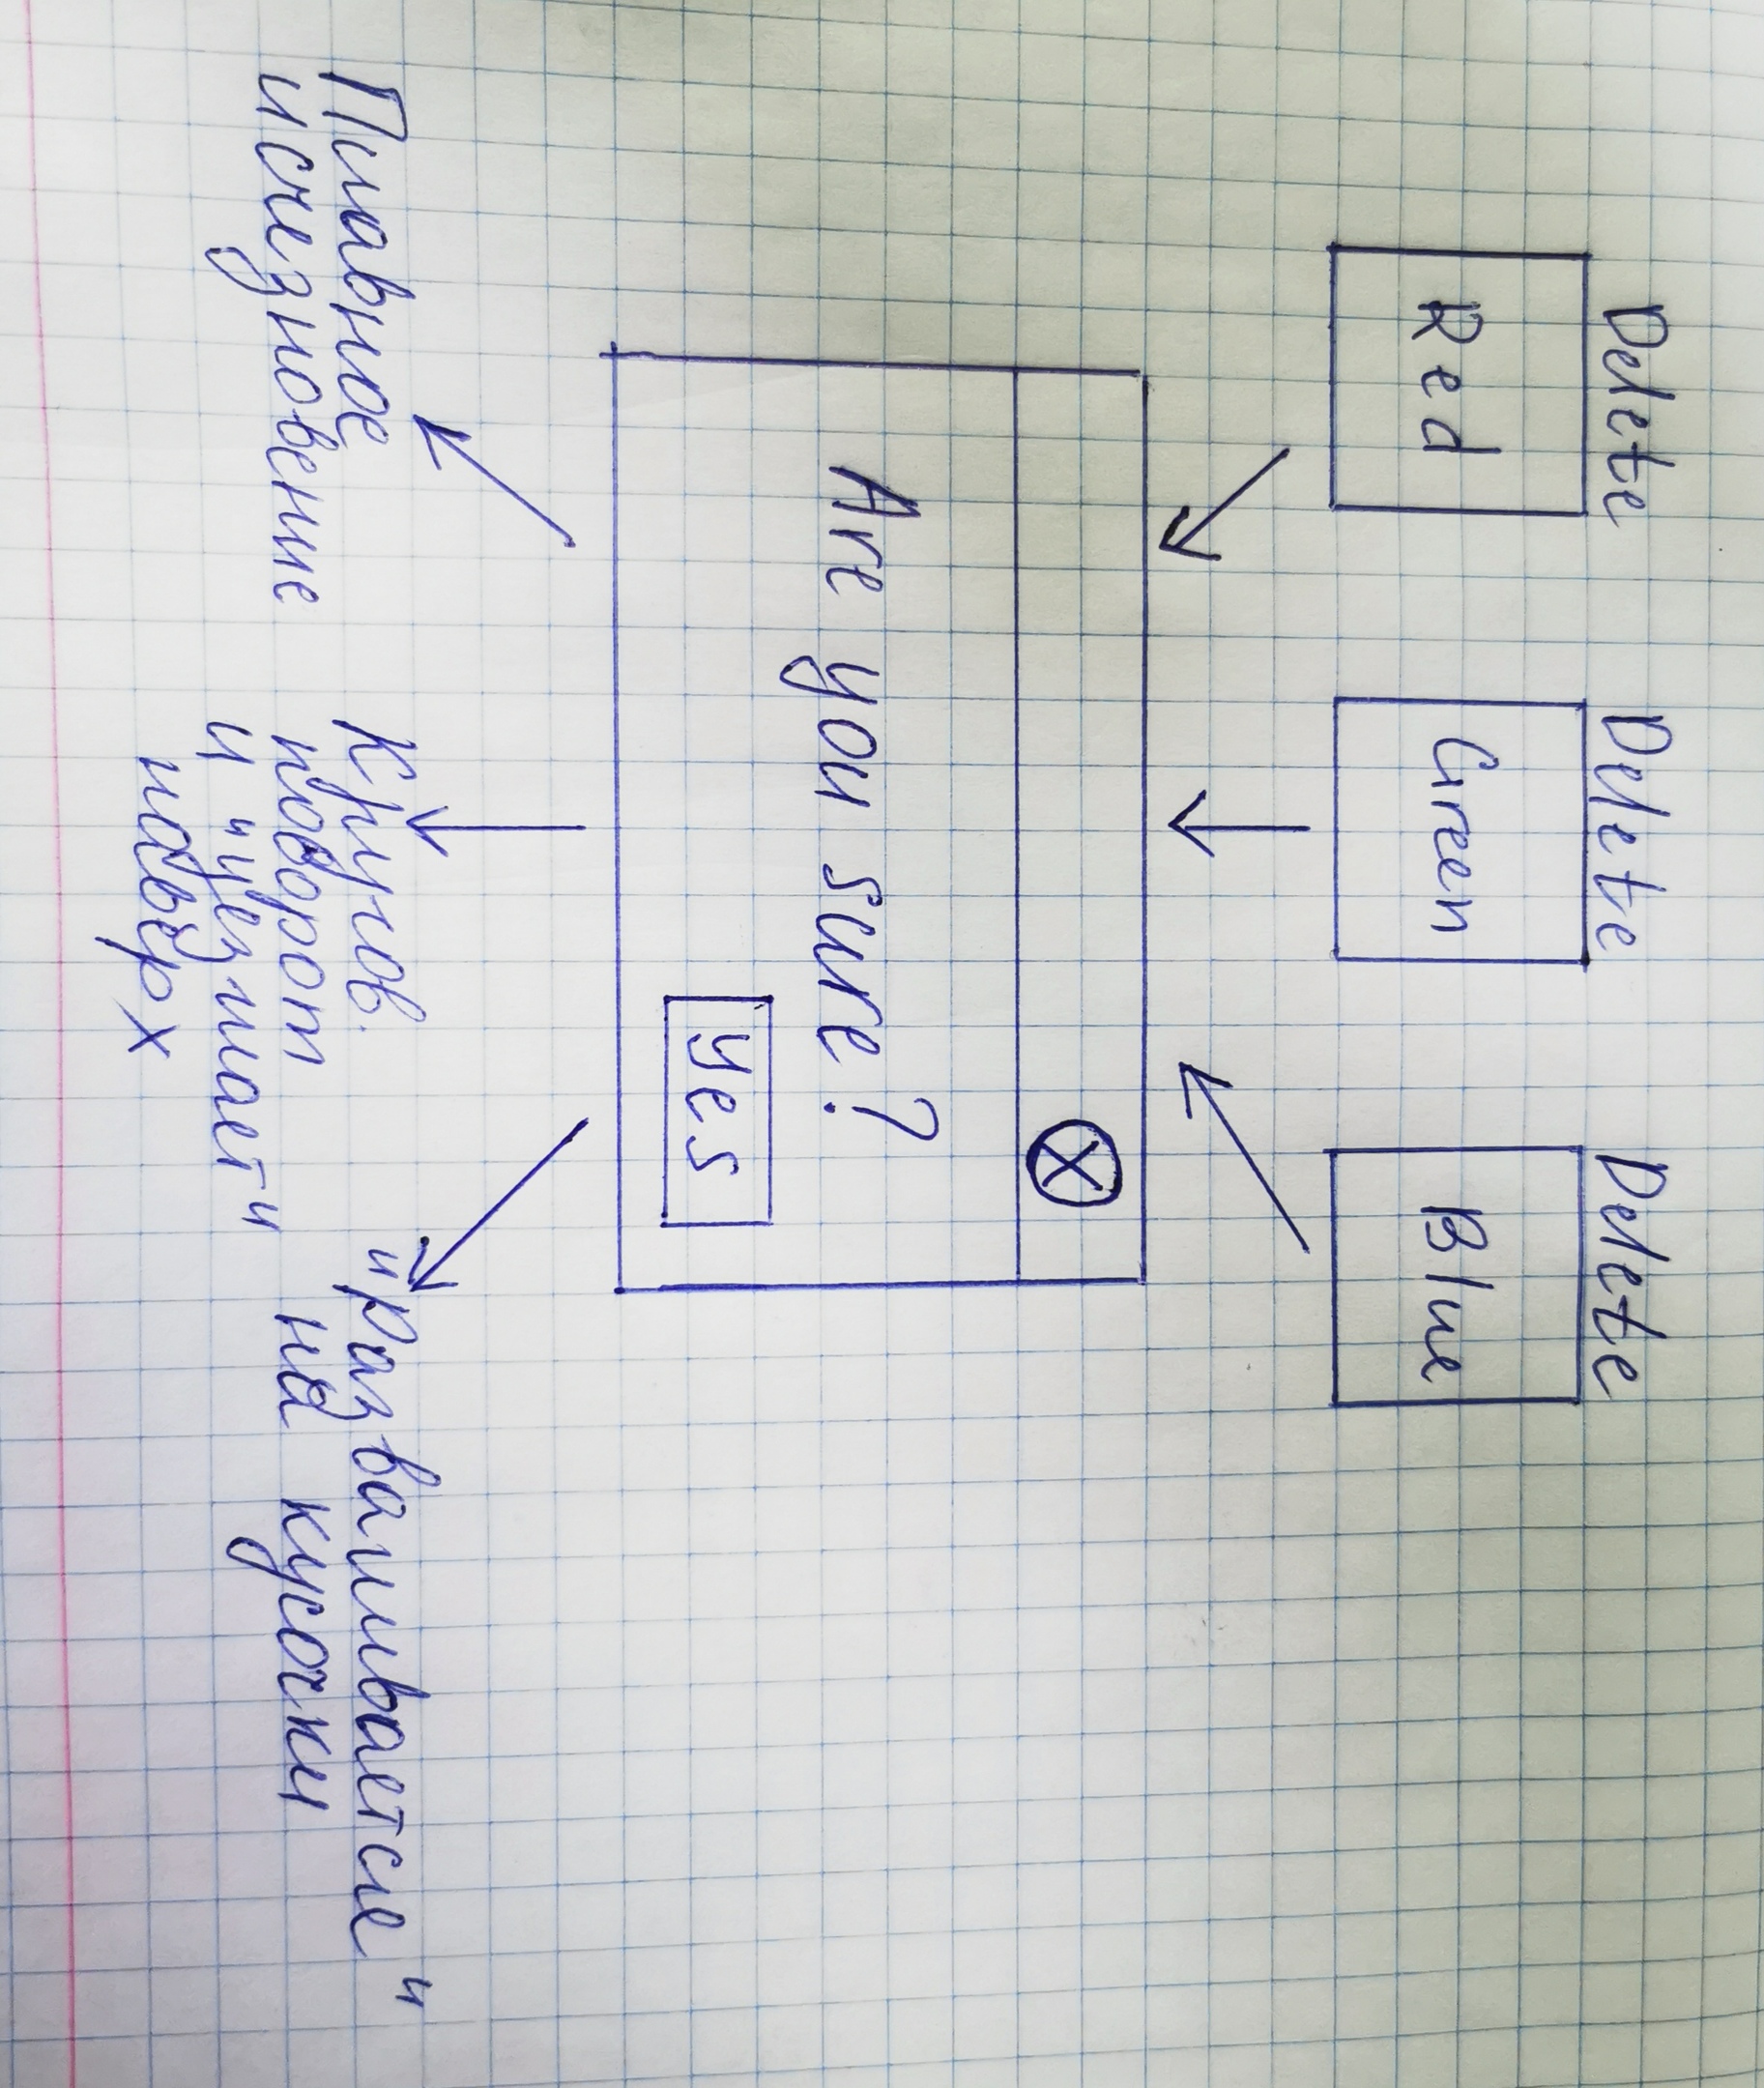 Delete Delete Delete
Red Green Blue
X
Are you sure?
Yes
Плавное
исчезновение
Кругов.
поворот
и "уезжает"
наверх
"Разваливается"
на кусочки